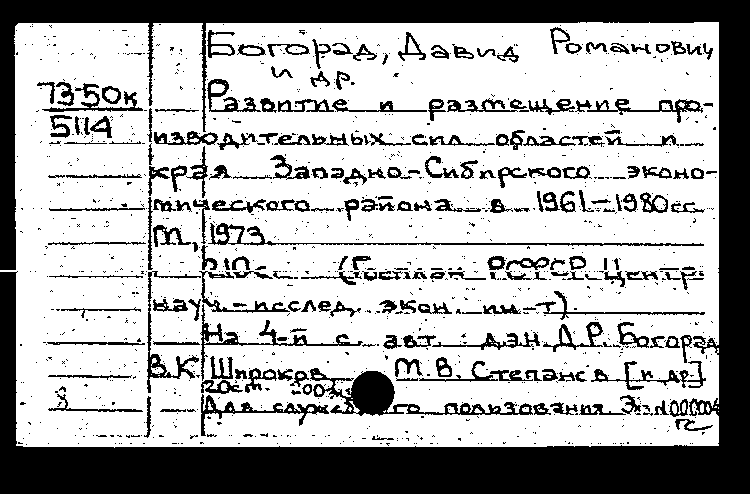 Богорад, Давид Романович
и др.
73-50к
5114
Развитие и размещение про-
изводительных сил областей и
края Западно-Сибирского эконо-
мического района в 1961–1980гг.
М., 1973.
210с. (Госплан РСФСР. Центр.
науч.-исслед. экон. ин-т).
На 4-й с. авт.: д.э.н. Д.Р. Богорад,
В.К. Широков, М.В. Степанов [и др.]
20см.
8
Для служебного пользования Экз.